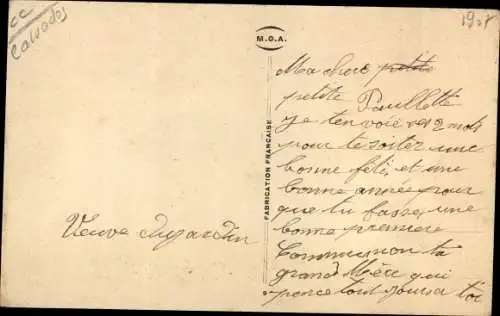 cc
Calvados
1907
M.D.A.
FABRICATION FRANÇAISE
Ma cher petite
petite Paullette
Je tenvoie ces 2 mots
pour te soiter une
bonne fete, et une
bonne année pour
que tu fasse, une
bonne premiere
Communion ta
grand Mère qui
pence tout jours a toi
Veuve Dujardin